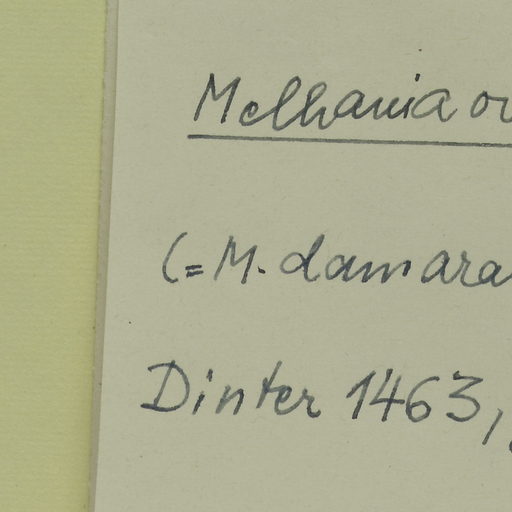 Melhania ov
(= M. damara
Dinter 1463,